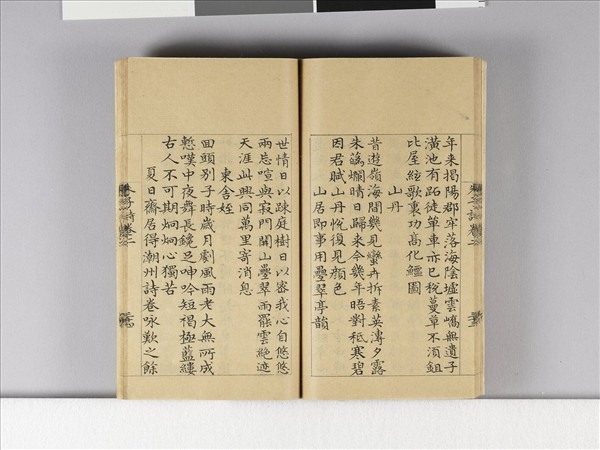 年来揭陽郡牢落海陰墟雲嶠無遺子
潢池有跖徒單車亦已稅蔓草不須鉏
比屋絃歌裏功高化鱷圖
山丹
昔遊嶺海間幾見蠻卉折素英溥夕露
朱蘤爛晴日歸来今幾年晤對秪寒碧
因君賦山丹怳復見顔色
山居即事用疊翠亭韻
世情日以踈庭樹日以密我心自悠悠
兩忘喧與寂門閑山疊翠雨罷雲絶迹
天涯此興同萬里寄消息
東舍姪
回頭别子時歲月劇風雨老大無所成
慙嘆中夜舞長鑱足呻吟短褐極藍縷
古人不可期炯炯心獨苦
夏日齋居得潮州詩卷咏歎之餘